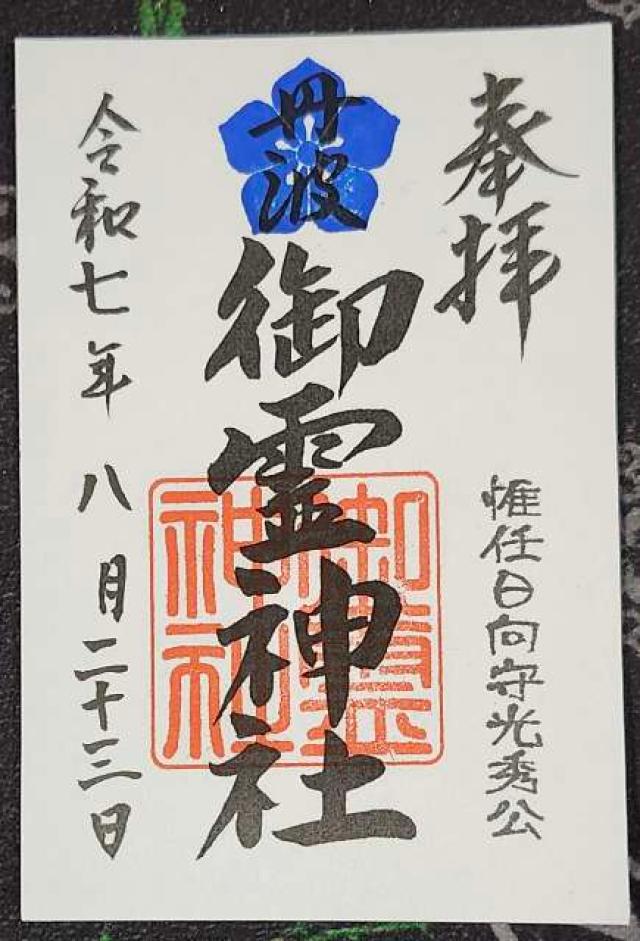 奉拝
惟任日向守光秀公
丹波
御霊神社
御霊
神社
令和七年八月二十三日